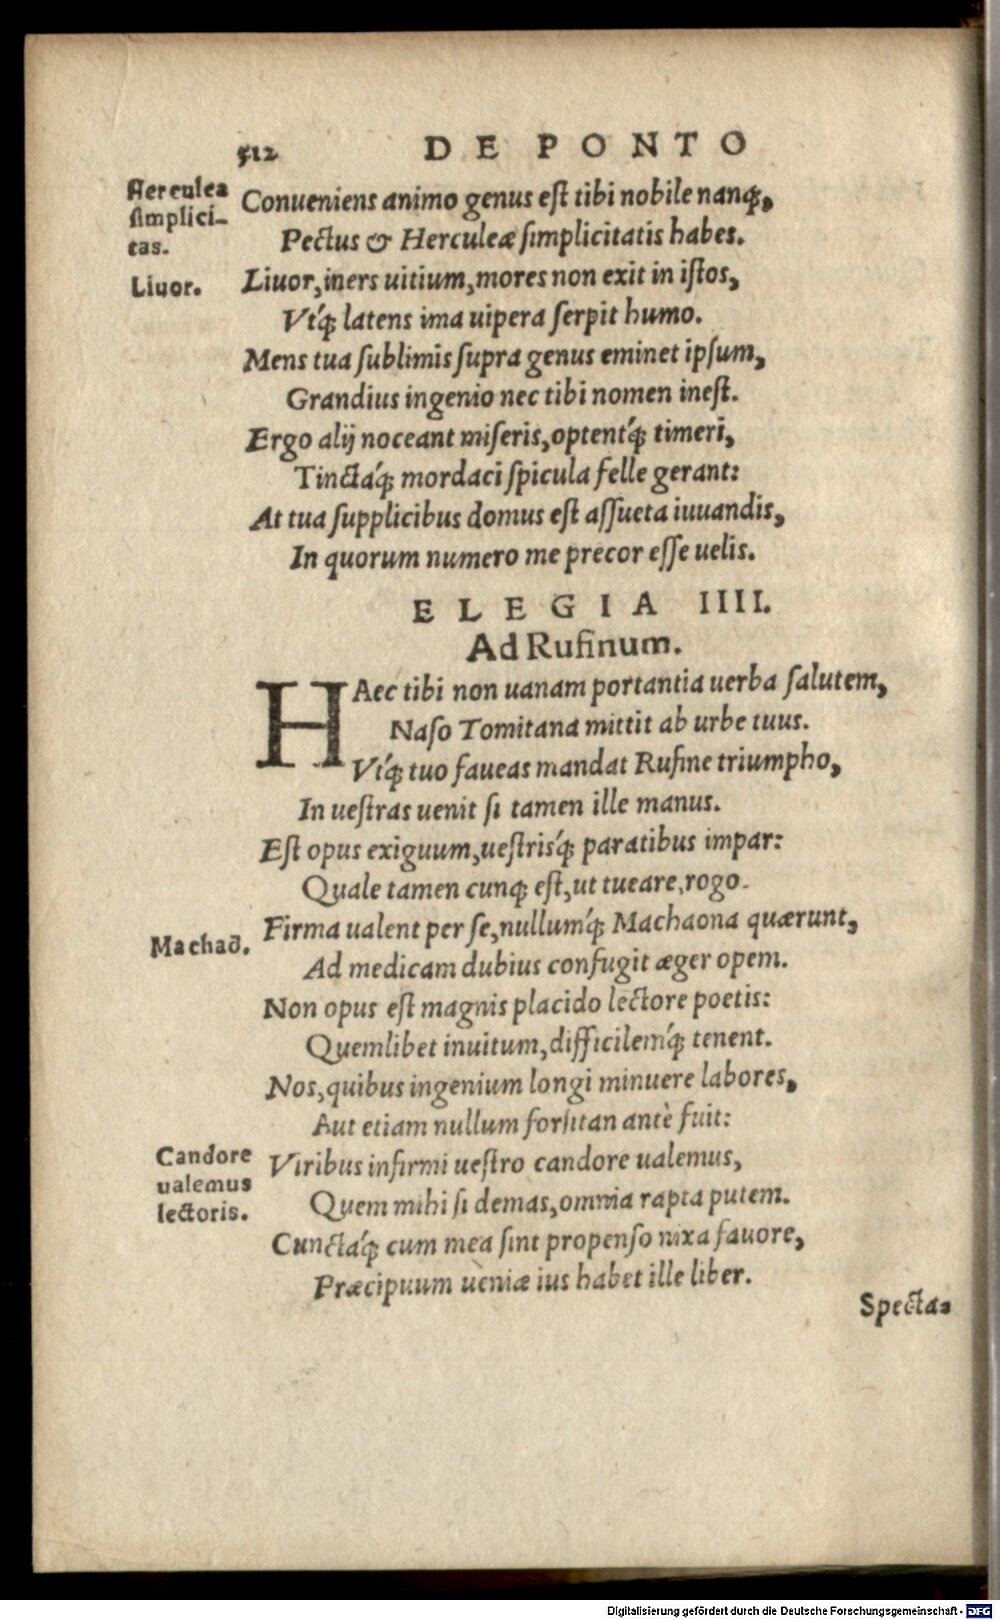 512 DE PONTO
Herculea
simplici-
tas.
Conueniens animo genus est tibi nobile nanq;,
Pectus & Herculeæ simplicitatis habes.
Liuor.
Liuor, iners uitium, mores non exit in istos,
Vtq́; latens ima uipera serpit humo.
Mens tua sublimis supra genus eminet ipsum,
Grandius ingenio nec tibi nomen inest.
Ergo alij noceant miseris, optentq́; timeri,
Tinctaq́; mordaci spicula felle gerant:
At tua supplicibus domus est assueta iuuandis,
In quorum numero me precor esse uelis.
ELEGIA IIII.
Ad Rufinum.
HAec tibi non uanam portantia uerba salutem,
Naso Tomitana mittit ab urbe tuus.
Vtq́; tuo faueas mandat Rufine triumpho,
In uestras uenit si tamen ille manus.
Est opus exiguum, uestrisq́; paratibus impar:
Quale tamen cunq; est, ut tueare, rogo.
Machaō.
Firma ualent per se, nullumq́; Machaona quærunt,
Ad medicam dubius confugit æger opem.
Non opus est magnis placido lectore poetis:
Quemlibet inuitum, difficilemq́; tenent.
Nos, quibus ingenium longi minuere labores,
Aut etiam nullum forsitan antè fuit:
Candore
ualemus
lectoris.
Viribus infirmi uestro candore ualemus,
Quem mihi si demas, omnia rapta putem.
Cunctaq́; cum mea sint propenso nixa fauore,
Præcipuum ueniæ ius habet ille liber.
Specta-
Digitalisierung gefördert durch die Deutsche Forschungsgemeinschaft - DFG